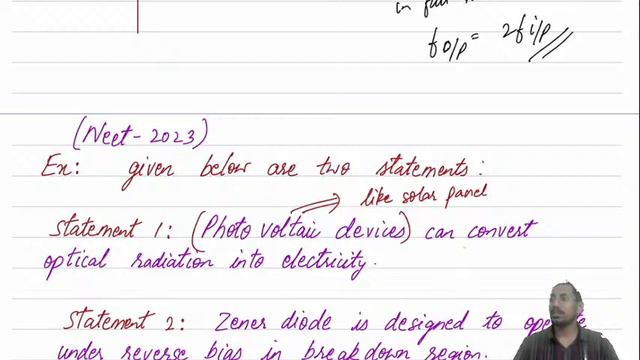 in full
f o/p = 2f i/p
(Neet-2023)
Ex: given below are two statements:
like solar panel
Statement 1: (Photo voltaic devices) can convert
optical radiation into electricity.
Statement 2: Zener diode is designed to operate
under reverse bias in breakdown region.